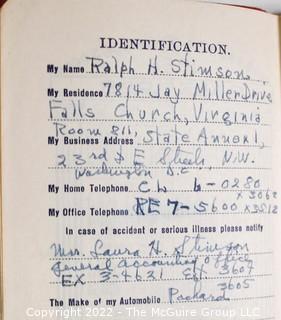 IDENTIFICATION.
My Name Ralph H. Stimson
My Residence 7814 Jay Miller Drive
Falls Church, Virginia
Room 811,
My Business Address State Annex 1,
23rd & E Streets, N.W.
Washington D.C.
My Home Telephone CL 6-0280
x 3062
My Office Telephone RE 7-5600 x3812
In case of accident or serious illness please notify
Mrs. Laura H. Stimson
General Accounting Office
EX 3-4621 Ext 3607
3605
The Make of my Automobile Packard
Copyright 2022 - The McGuire Group LLC